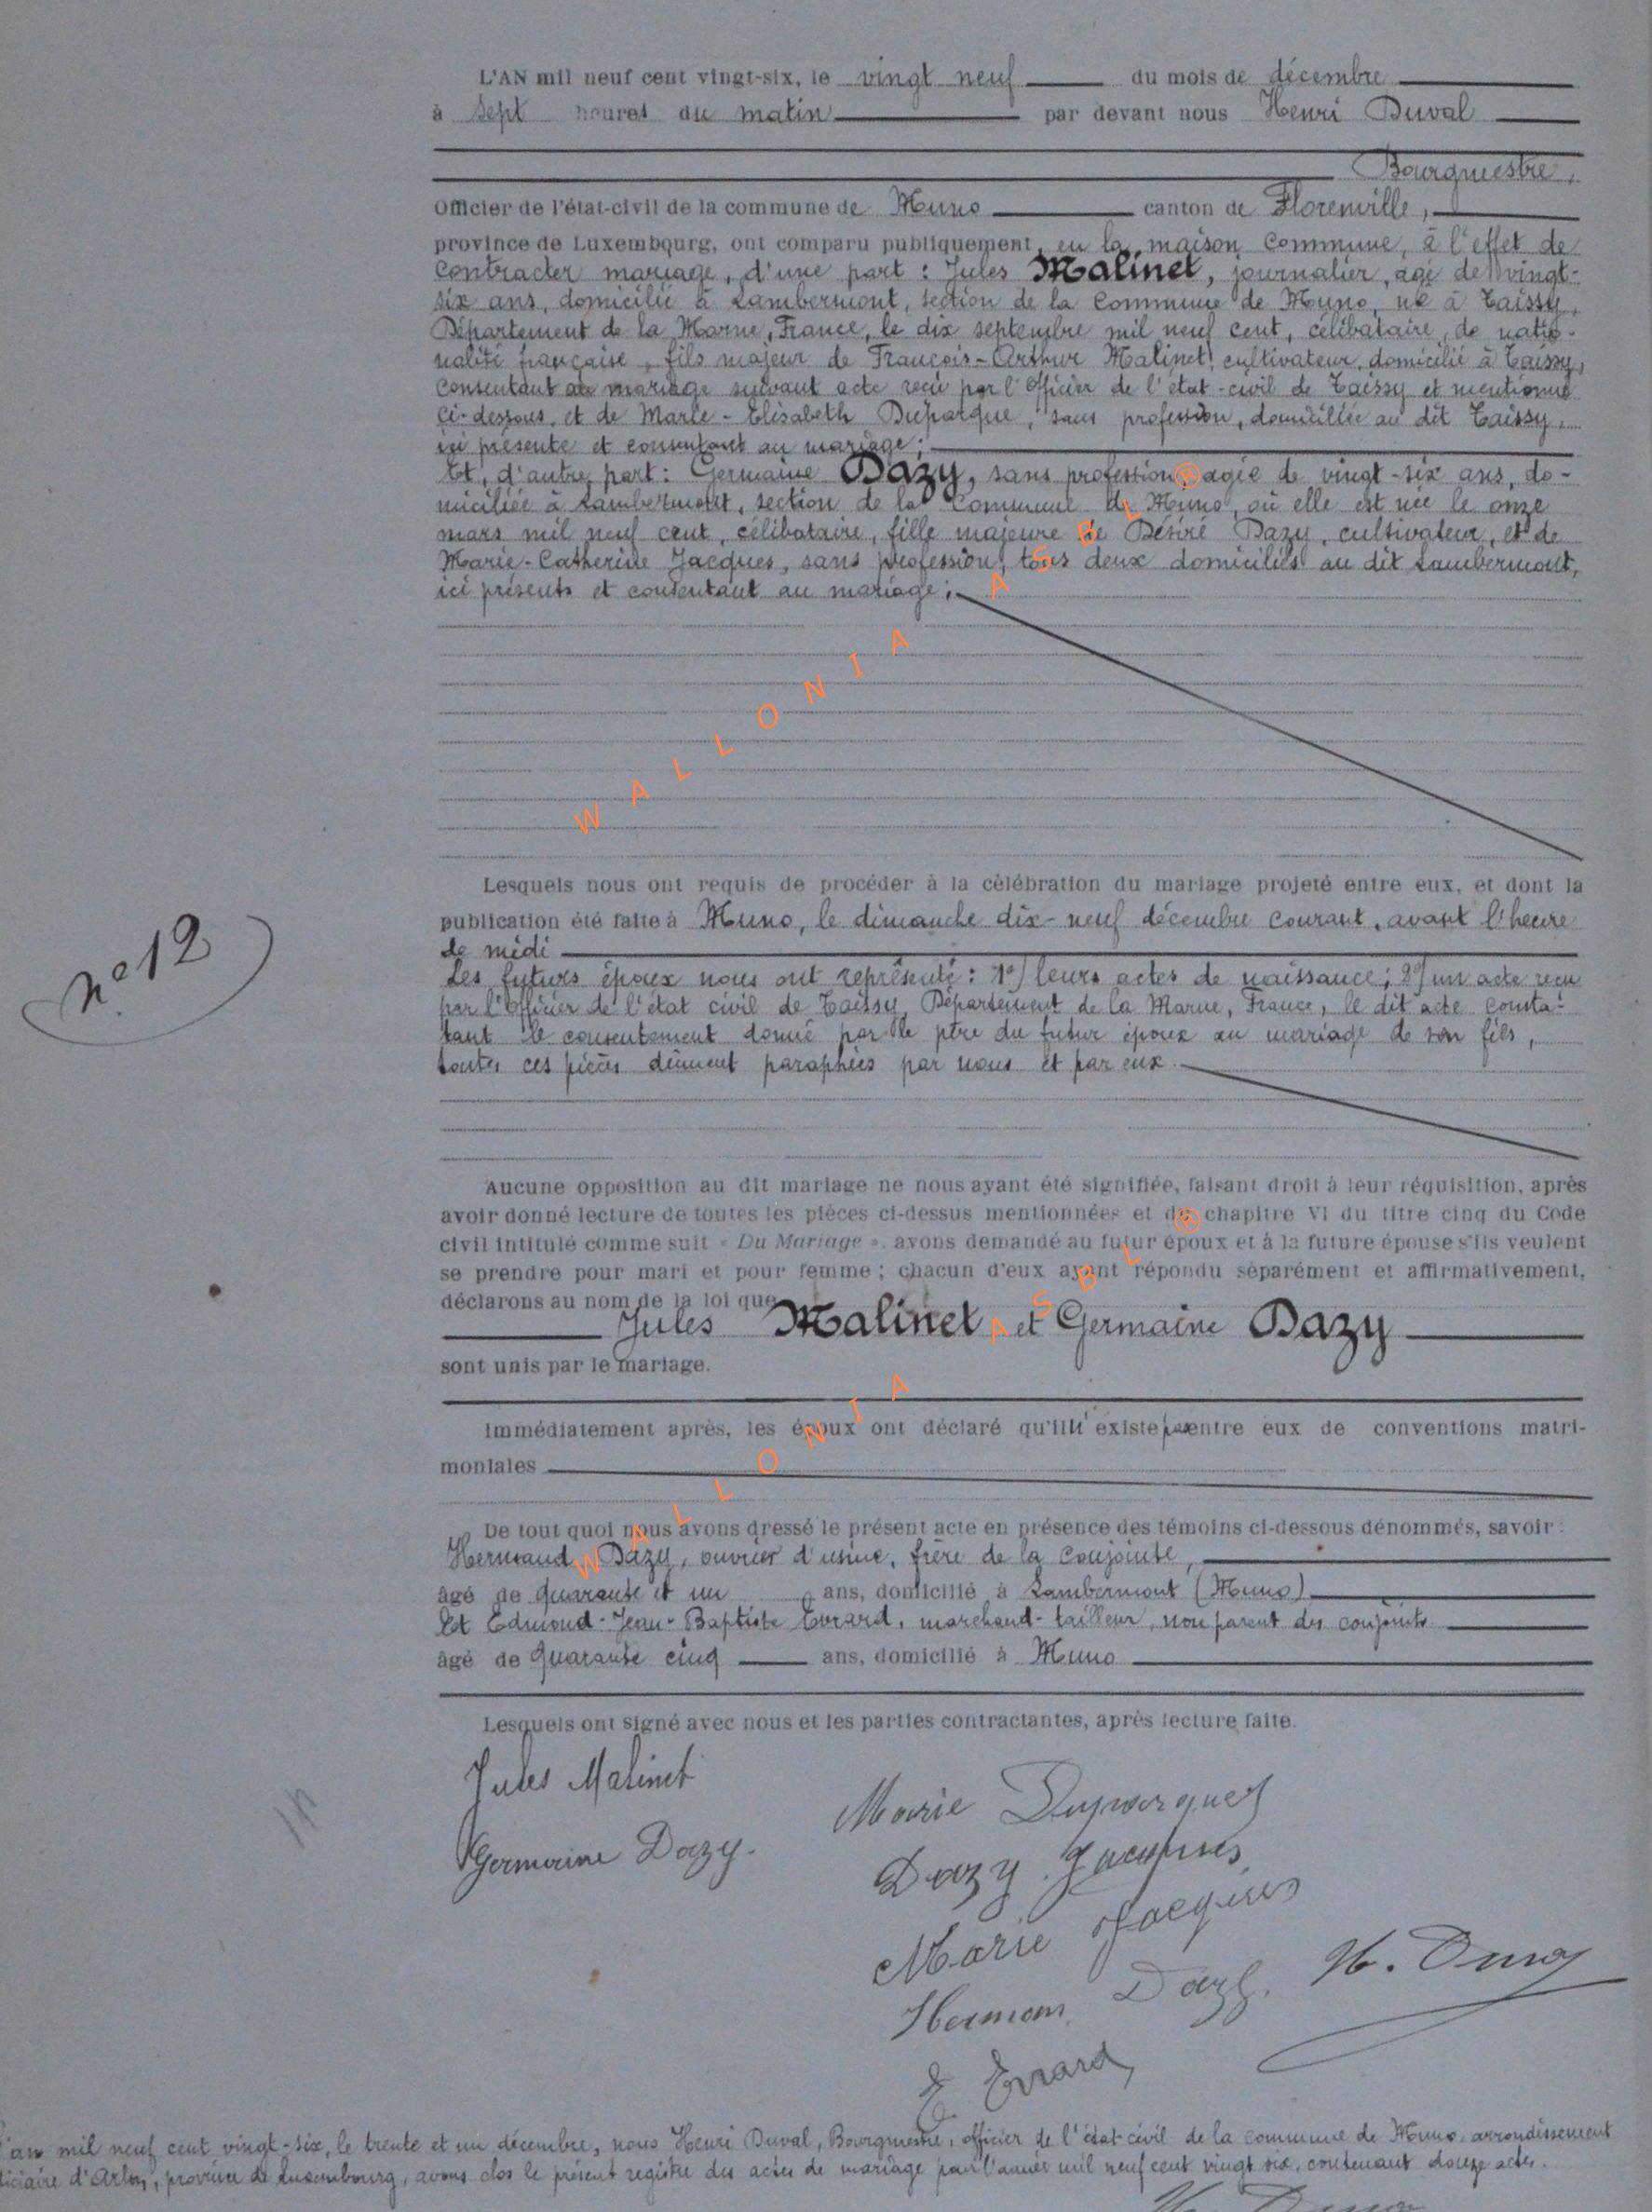 L'AN mil neuf cent vingt-six, le vingt neuf du mois de décembre
à sept heures du matin par devant nous Henri Duval
Bourgmestre,
Officier de l'état-civil de la commune de Muno canton de Florenville,
province de Luxembourg, ont comparu publiquement, en la maison Commune, à l'effet de
contracter mariage, d'une part : Jules Malinet, journalier, agé de vingt-
six ans, domicilié à Lambermont, section de la Commune de Muno, né à Taissy,
Département de la Marne, France, le dix septembre mil neuf cent, célibataire, de natio-
nalité française, fils majeur de François-Arthur Malinet, cultivateur, domicilié à Taissy,
consentant au mariage suivant acte reçu par l'Officier de l'état-civil de Taissy et mentionné
ci-dessous, et de Marie-Elisabeth Duparque, sans profession, domiciliée au dit Taissy,
ici présente et consentant au mariage ;
Et, d'autre part : Germaine Dazy, sans profession, agée de vingt-six ans, do-
miciliée à Lambermont, section de la Commune de Muno, où elle est née le onze
mars mil neuf cent, célibataire, fille majeure de Désiré Dazy, cultivateur, et de
Marie-Catherine Jacques, sans profession, tous deux domiciliés au dit Lambermont,
ici présents et consentant au mariage ;
WALLONIA ASBL ®
Lesquels nous ont requis de procéder à la célébration du mariage projeté entre eux, et dont la
publication été faite à Muno, le dimanche dix-neuf décembre courant, avant l'heure
de midi
n° 12
Les futurs époux nous ont représenté : 1°) leurs actes de naissance ; 2°) un acte reçu
par l'Officier de l'état civil de Taissy, Département de la Marne, France, le dit acte consta-
tant le consentement donné par le père du futur époux au mariage de son fils,
toutes ces pièces dûment paraphées par nous et par eux.
Aucune opposition au dit mariage ne nous ayant été signifiée, faisant droit à leur réquisition, après
avoir donné lecture de toutes les pièces ci-dessus mentionnées et du chapitre VI du titre cinq du Code
civil intitulé comme suit « Du Mariage ». avons demandé au futur époux et à la future épouse s'ils veulent
se prendre pour mari et pour femme ; chacun d'eux ayant répondu séparément et affirmativement,
déclarons au nom de la loi que
Jules Malinet et Germaine Dazy
sont unis par le mariage.
WALLONIA ASBL ®
Immédiatement après, les époux ont déclaré qu'il n'existe pas entre eux de conventions matri-
moniales
De tout quoi nous avons dressé le présent acte en présence des témoins ci-dessous dénommés, savoir :
Dazy, ouvrier d'usine, frère de la conjointe,
âgé de quarante et un ans, domicilié à Lambermont (Muno)
Et Edmond-Jean-Baptiste Evrard, marchand-tailleur, non parent des conjoints
âgé de quarante cinq ans, domicilié à Muno
Lesquels ont signé avec nous et les parties contractantes, après lecture faite.
Jules Malinet
Marie Duparque
Germaine Dazy.
Dazy Jacques
Marie Jacques
Dazy. H. Duval
E Evrard
l'an mil neuf cent vingt-six, le trente et un décembre, nous Henri Duval, Bourgmestre, officier de l'état-civil de la commune de Muno, arrondissement
d'Arlon, province de Luxembourg, avons clos le présent registre des actes de mariage pour l'année mil neuf cent vingt six, contenant douze actes.